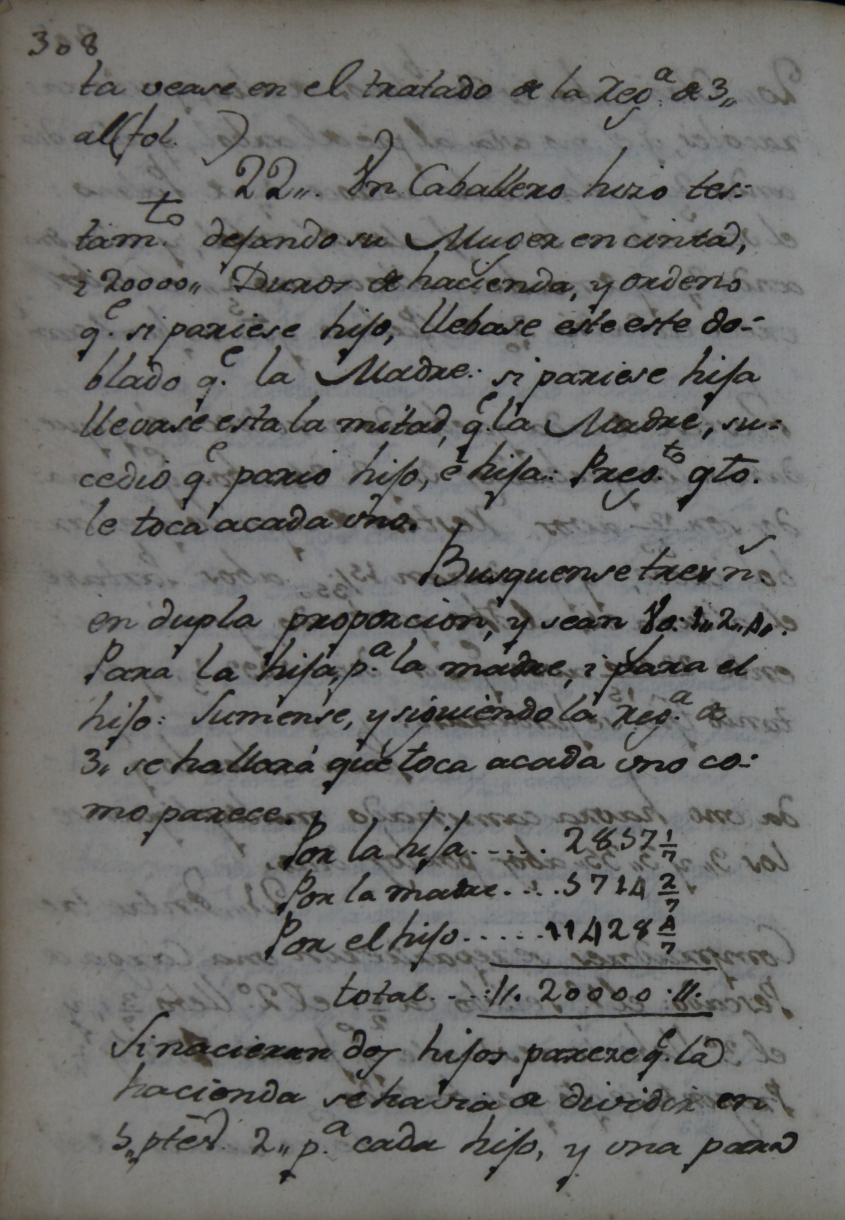 308
ta vease en el tratado de la Reg.ª de 3,,
al (fol. )
22,,. Un Cavallero hizo tes-
tam.to dejando su Muger en cinta,
i 20000,, Duros de hacienda, y ordeno
q.e si pariese hijo, llebase este este do-
blado q.e la Madre: si pariese hija
llevase esta la mitad, q.e la Madre, su-
cedio q.e pario hijo, é hija: Preg.to qto.
le toca acada uno.
Busquense tres n.
en dupla proporcion, y sean Vg: 1,, 2,, 4,,.
Para la hija, p.ª la madre, i para el
hijo: Sumense, y siguiendo la reg.ª de
3,, se hallará que toca acada uno co-
mo parece.
Por la hija..... 2857 1/7
Por la madre.... 5714 2/7
Por el hijo..... 11428 4/7
total...://. 20000 .//.
Si nacieran dos hijos parece q.e la
hacienda se havia de dividir en
5,, ptes. 2,, p.ª cada hijo, y una para